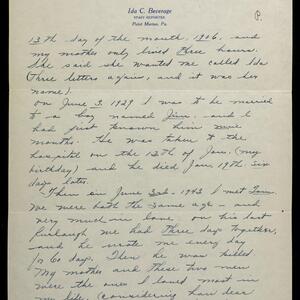 Ida C. Beverage
STAFF REPORTER
Point Marion, Pa.
P.
13th day of the month, 1906, and
my mother only lived three hours.
She said she wanted me called Ida
(three letters again, and it was her
name).
On June 3, 1929 I was to be married
to a boy named Jim, and I
had just known him nine
months. He was taken to the
hospital on the 13th of Jan. (my
birthday) and he died Jan 19th six
days later.
Then on June 3rd - 1943 I met Tom.
We were both the same age - and
very much in love, on his last
furlough we had three days together,
and he wrote me every day
for 60 days. Then he was killed
My mother and these two men
were the ones I loved most in
my life. (Considering how dear